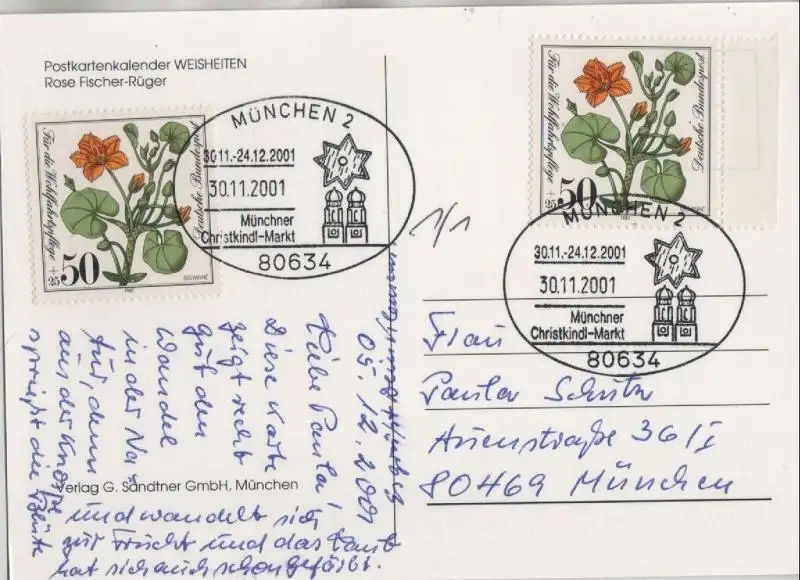 Postkartenkalender WEISHEITEN
Rose Fischer-Rüger
Für die Wohlfahrtspflege
Deutsche Bundespost
50
+25
SEEKANNE
1981
MÜNCHEN 2
30.11.-24.12.2001
30.11.2001
Münchner
Christkindl-Markt
80634
1/1
Für die Wohlfahrtspflege
Deutsche Bundespost
50
+25
MÜNCHEN 2
30.11.-24.12.2001
30.11.2001
Münchner
Christkindl-Markt
80634
05.12.2001
Liebe Paula,
diese Karte
zeigt recht
gut den
Wandel
in der Na-
tur, denn
aus der Knospe
sprießt die Blüte
und wandelt sich
zur Frucht und das Laub
hat sich auch schon gefärbt.
Verlag G. Sandtner GmbH, München
Frau
Paula
Auenstraße 36/I
80469 München